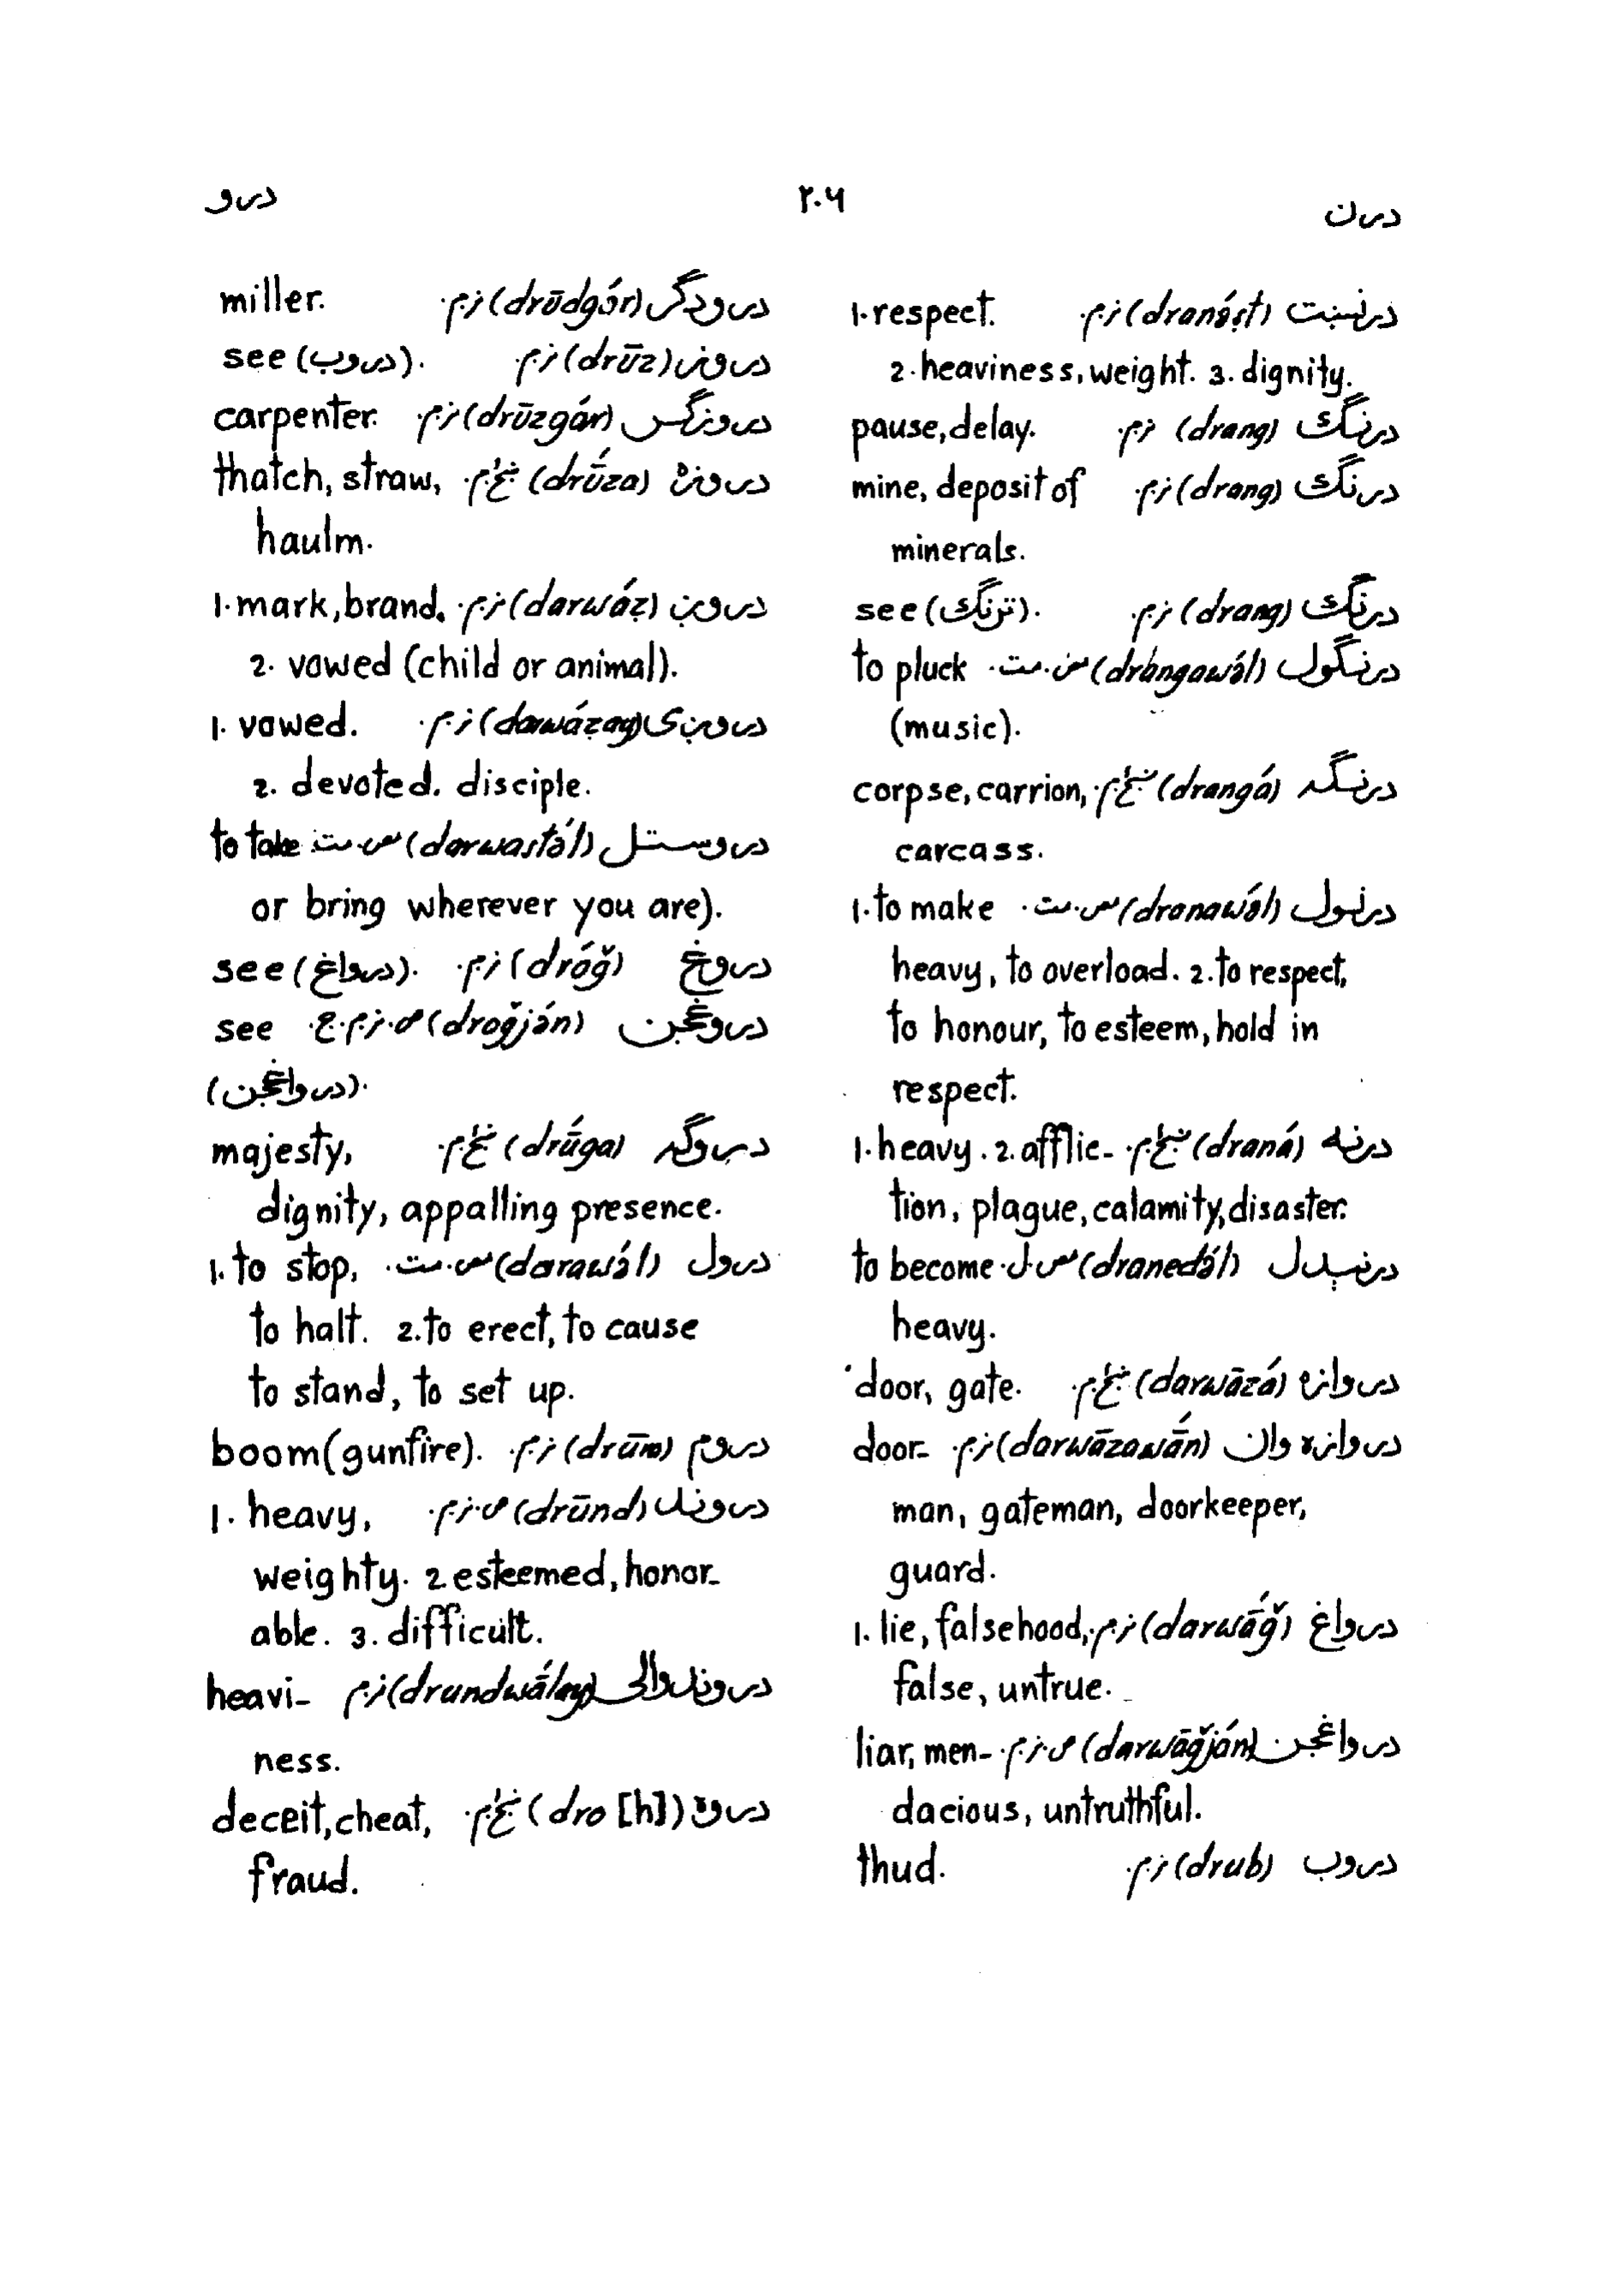 درن
۲۰۶
درو
درنښت (dranә́x̣t) ن.م. 1. respect.
2. heaviness, weight. 3. dignity.
درنګ (drang) ن.م. pause, delay.
درنګ (drang) ن.م. mine, deposit of
minerals.
درنګ (drang) ن.م. see (ترنګ).
درنګول (drangawә́l) س.مت. to pluck
(music).
درنګه (drangá) corpse, carrion,
carcass.
درنول (dranawә́l) س.مت. 1. to make
heavy, to overload. 2. to respect,
to honour, to esteem, hold in
respect.
درنه (draná) 1. heavy. 2. afflic-
tion, plague, calamity, disaster.
درنېدل (dranedә́l) س.ل. to become
heavy.
دروازه (darwāzá) door, gate.
دروازه وان (darwāzawā́n) ن.م. door-
man, gateman, doorkeeper,
guard.
درواغ (darwā́ǧ) ن.م. 1. lie, falsehood,
false, untrue.
درواغجن (darwāǧján) ص.ن.م. liar, men-
dacious, untruthful.
دروب (drub) ن.م. thud.
درودګر (drūdgár) ن.م. miller.
دروز (drūz) ن.م. see (دروب).
دروزګر (drūzgár) ن.م. carpenter.
دروزه (drū́za) thatch, straw,
haulm.
دروږ (darwáẓ) ن.م. 1. mark, brand.
2. vowed (child or animal).
دروږی (darwáẓay) ن.م. 1. vowed.
2. devoted. disciple.
دروستل (darwastә́l) س.مت. to take
or bring wherever you are).
دروغ (dróǧ) ن.م. see (درواغ).
دروغجن (droǧjә́n) ص.ن.م.ج. see
(درواغجن).
دروګه (drū́ga) majesty,
dignity, appalling presence.
درول (darawә́l) س.مت. 1. to stop,
to halt. 2. to erect, to cause
to stand, to set up.
دروم (drūm) ن.م. boom (gunfire).
دروند (drūnd) ص.ن.م. 1. heavy,
weighty. 2. esteemed, honor-
able. 3. difficult.
دروندوالی (drundwā́lay) ن.م. heavi-
ness.
دروه (dro [h]) deceit, cheat,
fraud.